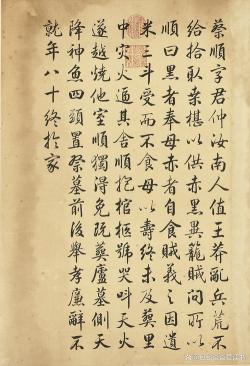 蔡順字君仲汝南人值王莽亂兵荒不
給拾取桒椹以供赤黑異籠賊問所以
順曰黑者奉母赤者自食賊義之因遺
米三斗受而不食母以壽終未及葬里
中灾火逼其舍順抱棺柩號哭叫天火
遂越燒他室順獨得免既葬廬墓側天
降神魚四頭置祭墓前後舉孝廉辭不
就年八十終於家